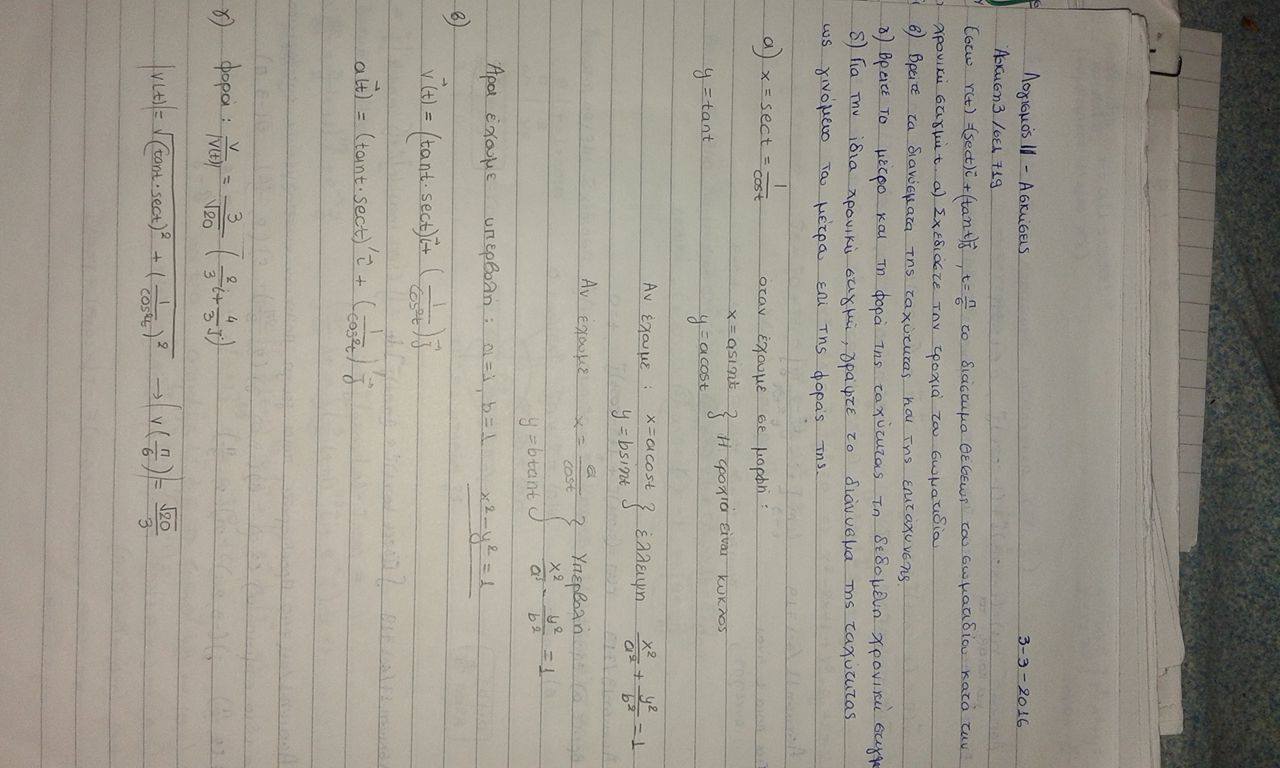 Λογισμός II - Ασκήσεις 3-3-2016
Άσκηση 3 / σελ 719
Έστω r(t) = (sect)i + (tant)j, t = π/6 το διάνυσμα θέσεως του σωματιδίου κατά την
χρονική στιγμή t a) Σχεδιάστε την τροχιά του σωματιδίου
β) Βρείτε τα διανύσματα της ταχύτητας και της επιτάχυνσης.
γ) Βρείτε το μέτρο και τη φορά της ταχύτητας τη δεδομένη χρονική στιγμή
δ) Για την ίδια χρονική στιγμή, γράψτε το διάνυσμα της ταχύτητας
ως γινόμενο του μέτρου επι της φοράς της.
a) x = sect = 1/cost όταν έχουμε σε μορφή:
x = asint
y = acost } Η τροχιά είναι κύκλος
y = tant
Αν έχουμε: x = acost
y = bsint } έλλειψη x²/a² + y²/b² = 1
Αν έχουμε x = a/cost
y = btant } Υπερβολή x²/a² - y²/b² = 1
Άρα έχουμε υπερβολή: a=1, b=1 x² - y² = 1
β)
v⃗(t) = (tant·sect)i⃗ + (1/cos²t)j⃗
a⃗(t) = (tant·sect)'i⃗ + (1/cos²t)'j⃗
γ) φορα: v/|v(t)| = 3/√20 (2/3 i + 4/3 j)
|v(t)| = √((tant·sect)² + (1/cos²t)²) → |v(π/6)| = √20/3